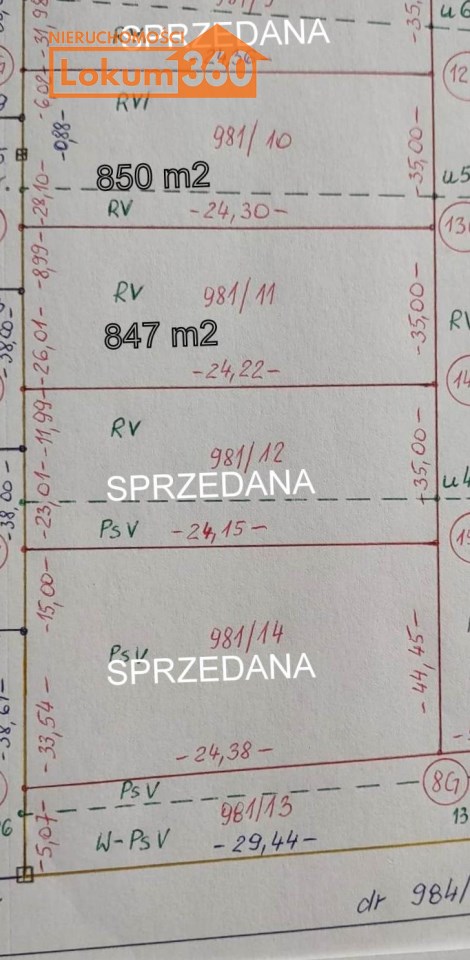 NIERUCHOMOŚCI
Lokum360
SPRZEDANA
-24,36-
RVI
981/10
850 m2
RV
-24,30-
RV
981/11
847 m2
-24,22-
RV
981/12
SPRZEDANA
PsV
-24,15-
981/14
PsV
SPRZEDANA
-24,38-
PsV
981/13
W-PsV
-29,44-
dr 984/
31,98
-6,02-
-0,88-
-28,10-
-8,99-
-26,01-
-11,99-
-23,01-
-15,00-
-33,54-
-5,07-
-38,00-
-38,00-
-38,61-
-35,
-35,00-
-35,00-
-35,00-
-44,45-
u6
12
u5
13
RV
14
u4
8G
13